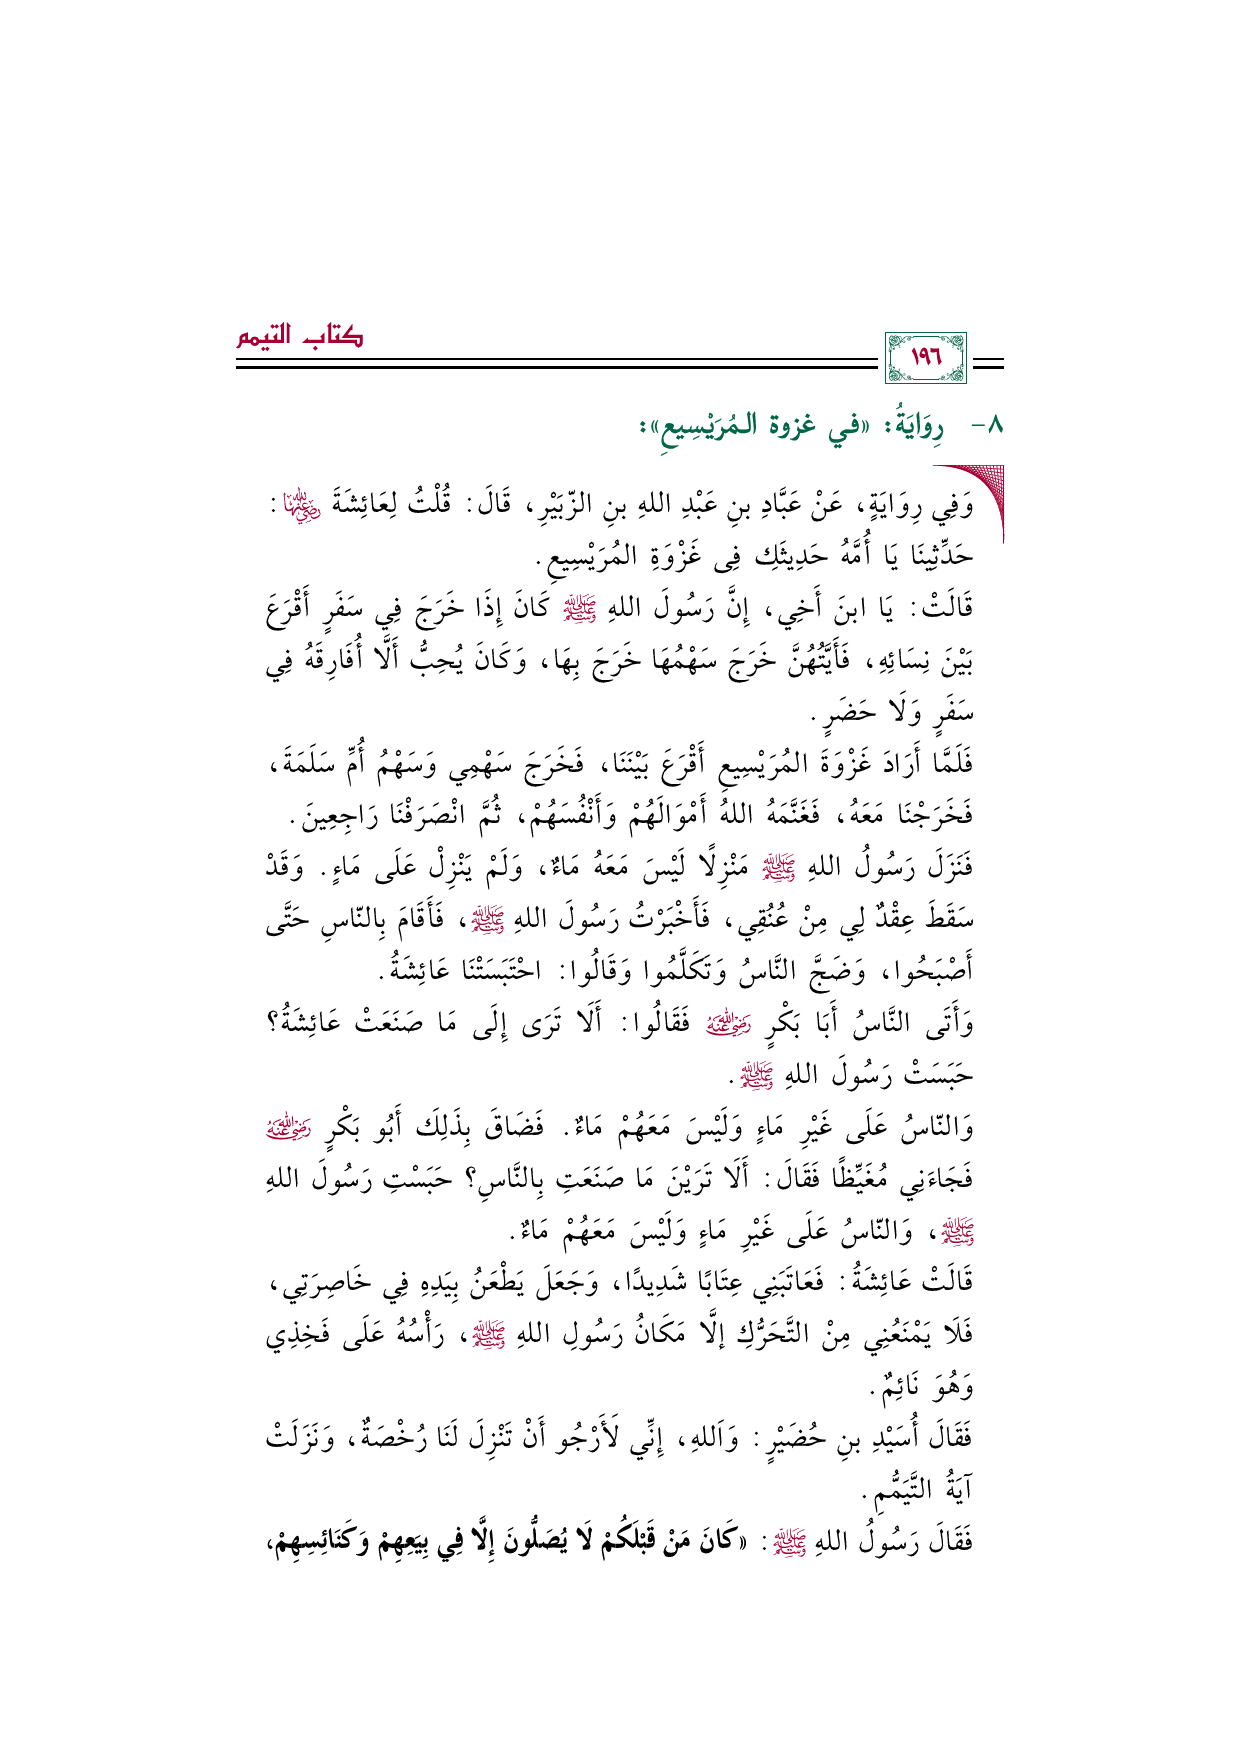 كتاب التيمم
١٩٦
٨- رِوَايَةُ: «في غزوة المُرَيْسِيعِ»:
وَفِي رِوَايَةٍ، عَنْ عَبَّادِ بنِ عَبْدِ اللهِ بنِ الزّبَيْرِ، قَالَ: قُلْتُ لِعَائِشَةَ رضي الله عنها:
حَدِّثِينَا يَا أُمَّهُ حَدِيثَكِ فِى غَزْوَةِ المُرَيْسِيعِ.
قَالَتْ: يَا ابنَ أَخِي، إِنَّ رَسُولَ اللهِ ﷺ كَانَ إِذَا خَرَجَ فِي سَفَرٍ أَقْرَعَ
بَيْنَ نِسَائِهِ، فَأَيَّتُهُنَّ خَرَجَ سَهْمُهَا خَرَجَ بِهَا، وَكَانَ يُحِبُّ أَلَّا أُفَارِقَهُ فِي
سَفَرٍ وَلَا حَضَرٍ.
فَلَمَّا أَرَادَ غَزْوَةَ المُرَيْسِيعِ أَقْرَعَ بَيْنَنَا، فَخَرَجَ سَهْمِي وَسَهْمُ أُمِّ سَلَمَةَ،
فَخَرَجْنَا مَعَهُ، فَغَنَّمَهُ اللهُ أَمْوَالَهُمْ وَأَنْفُسَهُمْ، ثُمَّ انْصَرَفْنَا رَاجِعِينَ.
فَنَزَلَ رَسُولُ اللهِ ﷺ مَنْزِلًا لَيْسَ مَعَهُ مَاءٌ، وَلَمْ يَنْزِلْ عَلَى مَاءٍ. وَقَدْ
سَقَطَ عِقْدٌ لِي مِنْ عُنُقِي، فَأَخْبَرْتُ رَسُولَ اللهِ ﷺ، فَأَقَامَ بِالنّاسِ حَتَّى
أَصْبَحُوا، وَضَجَّ النَّاسُ وَتَكَلَّمُوا وَقَالُوا: احْتَبَسَتْنَا عَائِشَةُ.
وَأَتَى النَّاسُ أَبَا بَكْرٍ رضي الله عنه فَقَالُوا: أَلَا تَرَى إِلَى مَا صَنَعَتْ عَائِشَةُ؟
حَبَسَتْ رَسُولَ اللهِ ﷺ.
وَالنّاسُ عَلَى غَيْرِ مَاءٍ وَلَيْسَ مَعَهُمْ مَاءٌ. فَضَاقَ بِذَلِكَ أَبُو بَكْرٍ رضي الله عنه
فَجَاءَنِي مُغَيِّظًا فَقَالَ: أَلَا تَرَيْنَ مَا صَنَعَتِ بِالنَّاسِ؟ حَبَسْتِ رَسُولَ اللهِ
ﷺ، وَالنّاسُ عَلَى غَيْرِ مَاءٍ وَلَيْسَ مَعَهُمْ مَاءٌ.
قَالَتْ عَائِشَةُ: فَعَاتَبَنِي عِتَابًا شَدِيدًا، وَجَعَلَ يَطْعَنُ بِيَدِهِ فِي خَاصِرَتِي،
فَلَا يَمْنَعُنِي مِنْ التَّحَرُّكِ إلَّا مَكَانُ رَسُولِ اللهِ ﷺ، رَأْسُهُ عَلَى فَخِذِي
وَهُوَ نَائِمٌ.
فَقَالَ أُسَيْدِ بنِ حُضَيْرٍ: وَاَللهِ، إِنِّي لَأَرْجُو أَنْ تَنْزِلَ لَنَا رُخْصَةٌ، وَنَزَلَتْ
آيَةُ التَّيَمُّمِ.
فَقَالَ رَسُولُ اللهِ ﷺ: «كَانَ مَنْ قَبْلَكُمْ لَا يُصَلُّونَ إِلَّا فِي بِيَعِهِمْ وَكَنَائِسِهِمْ،